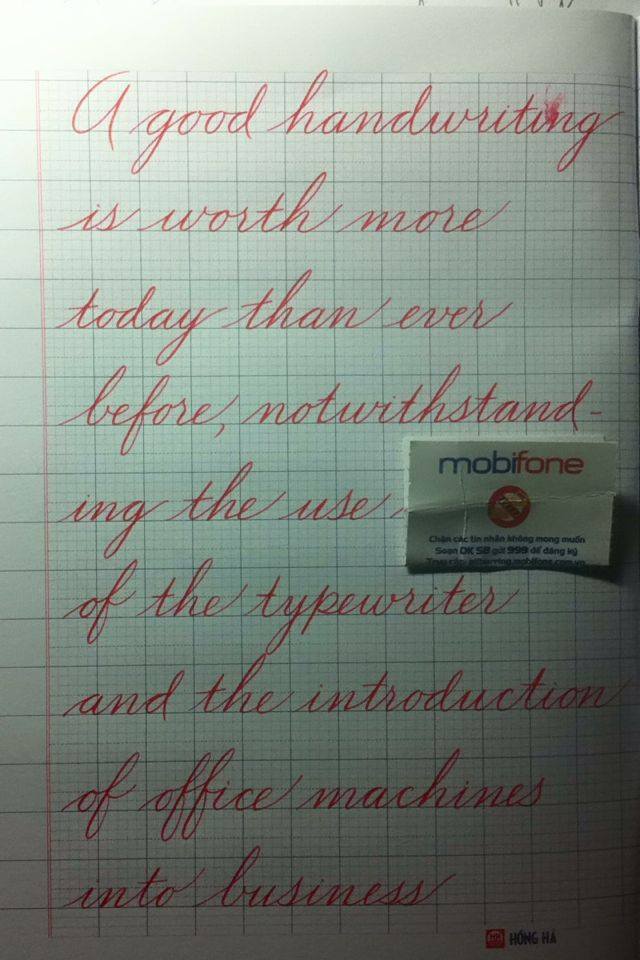 A good handwriting
is worth more
today than ever
before, notwithstand-
ing the use
mobifone
Chặn các tin nhắn không mong muốn
Soạn DK SB gửi 999 để đăng ký
of the typewriter
and the introduction
of office machines
into business
HỒNG HÀ